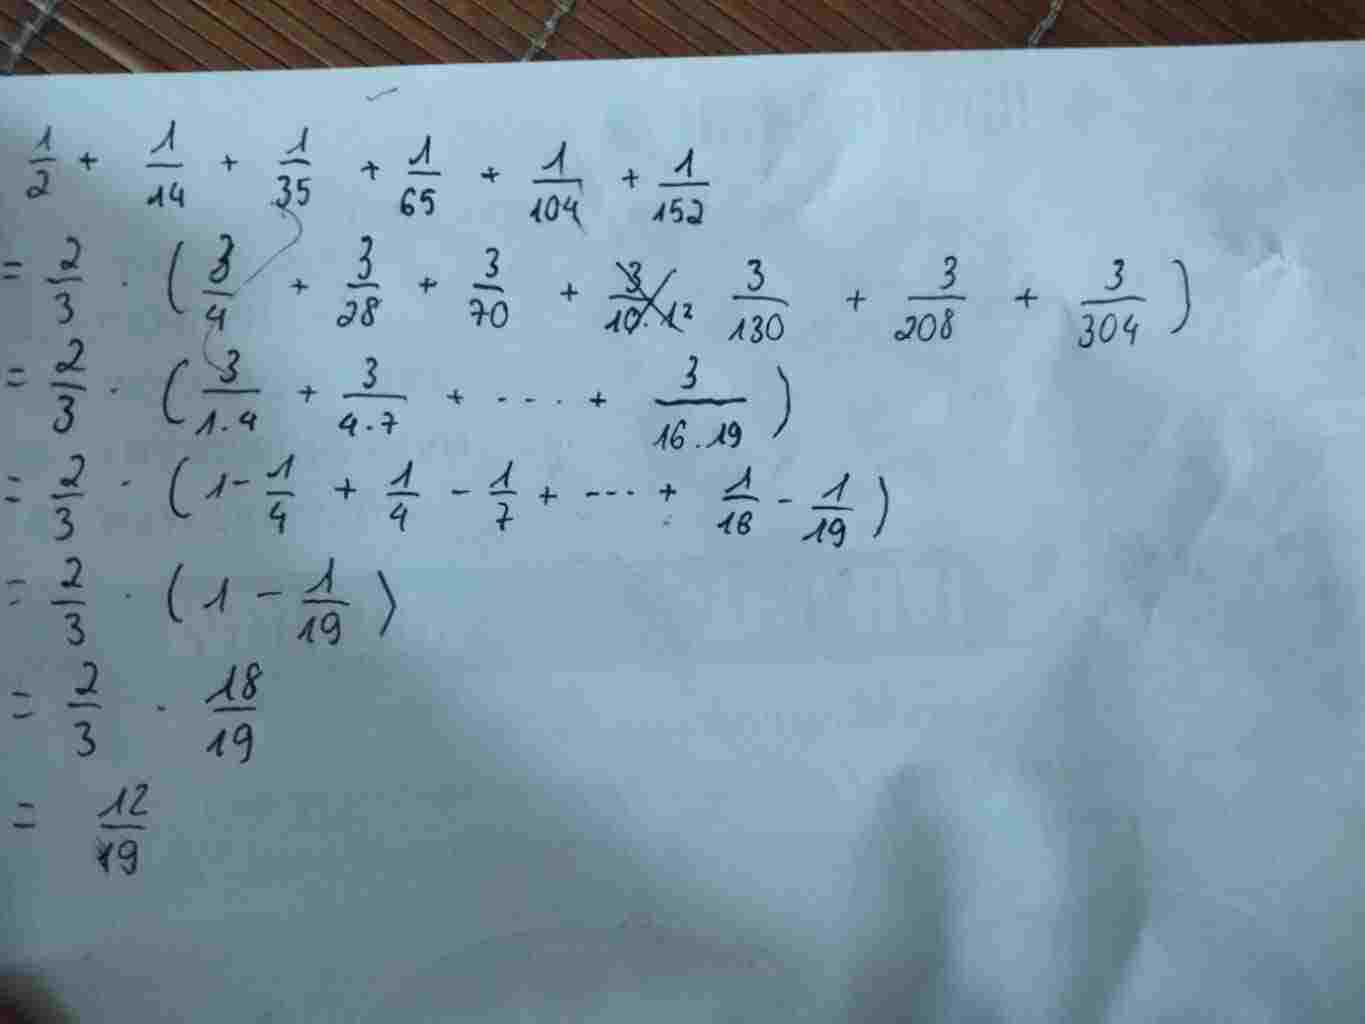 1/2 + 1/14 + 1/35 + 1/65 + 1/104 + 1/152
= 2/3 . ( 3/4 + 3/28 + 3/70 + 3/130 + 3/208 + 3/304 )
= 2/3 . ( 3/1.4 + 3/4.7 + .... + 3/16.19 )
= 2/3 . ( 1 - 1/4 + 1/4 - 1/7 + .... + 1/16 - 1/19 )
= 2/3 . ( 1 - 1/19 )
= 2/3 . 18/19
= 12/19